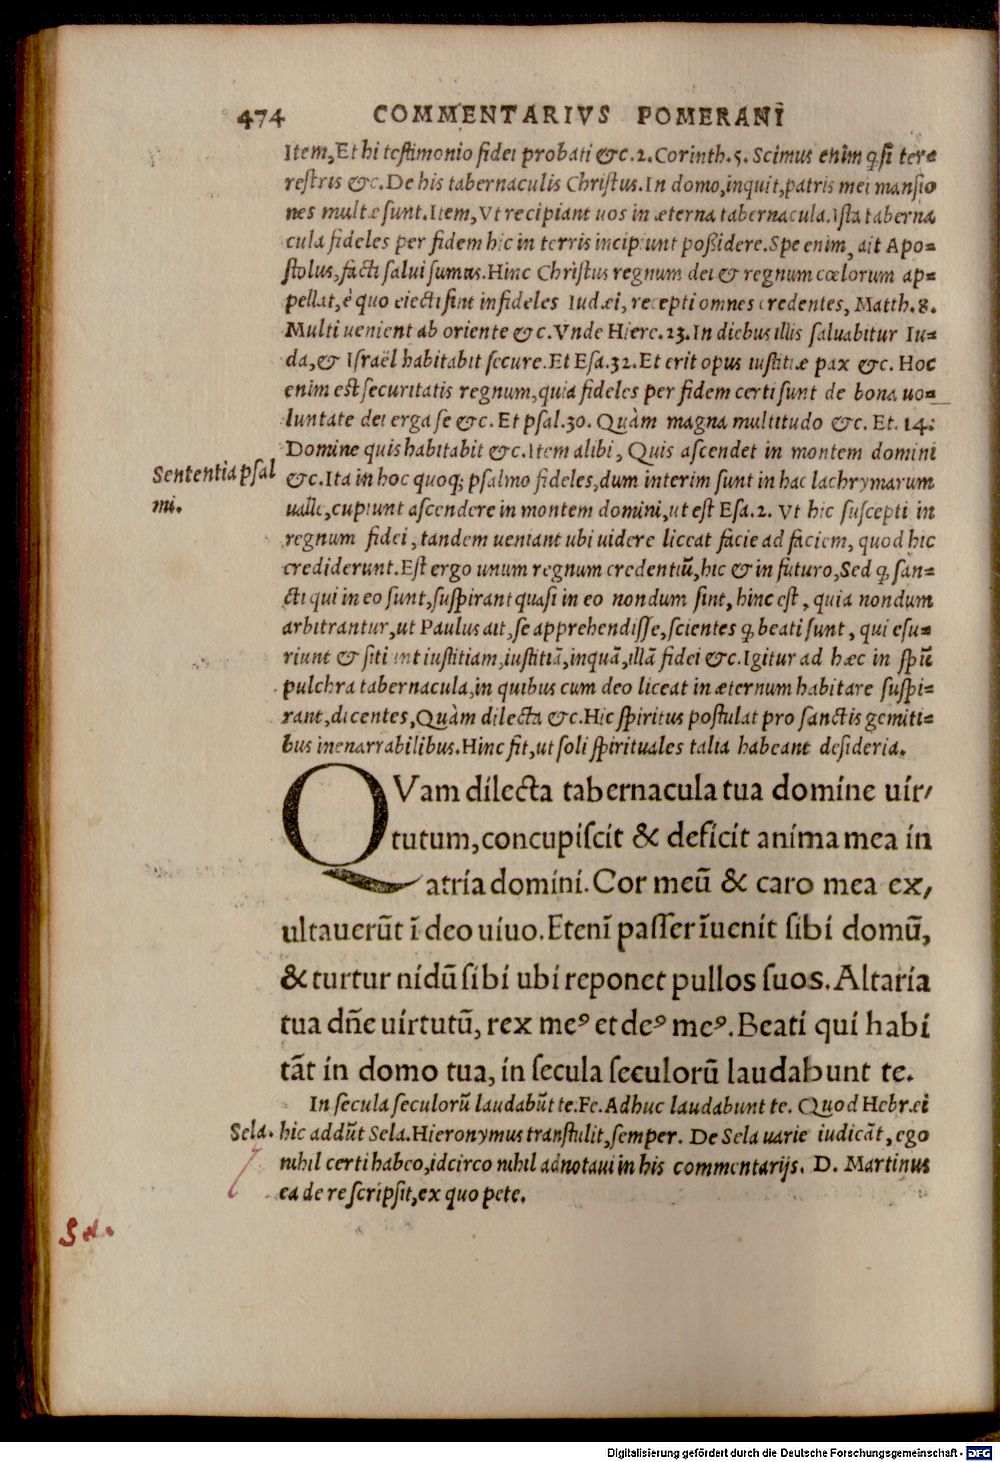 474 COMMENTARIVS POMERANI
Item, Et hi testimonio fidei probati &c. 2. Corinth. 5. Scimus enim ꝙ si ter=
restris &c. De his tabernaculis Christus. In domo, inquit, patris mei mansio
nes multæ sunt. Item, Vt recipiant uos in æterna tabernacula. Ista taberna
cula fideles per fidem hic in terris incipiunt poßidere. Spe enim, ait Apo=
stolus, facti salui sumus. Hinc Christus regnum dei & regnum cœlorum ap=
pellat, è quo eiecti sint infideles Iudæi, recepti omnes credentes, Matth. 8.
Multi uenient ab oriente &c. Vnde Hiere. 23. In diebus illis saluabitur Iu=
da, & Israël habitabit secure. Et Esa. 32. Et erit opus iustitiæ pax &c. Hoc
enim est securitatis regnum, quia fideles per fidem certi sunt de bona uo=
luntate dei erga se &c. Et psal. 30. Quàm magna multitudo &c. Et. 14.
Domine quis habitabit &c. Item alibi, Quis ascendet in montem domini
Sententia psal
mi.
&c. Ita in hoc quoq; psalmo fideles, dum interim sunt in hac lachrymarum
ualle, cupiunt ascendere in montem domini, ut est Esa. 2. Vt hic suscepti in
regnum fidei, tandem ueniant ubi uidere liceat facie ad faciem, quod hic
crediderunt. Est ergo unum regnum credentiū, hic & in futuro, Sed ꝙ san=
cti qui in eo sunt, suspirant quasi in eo nondum sint, hinc est, quia nondum
arbitrantur, ut Paulus ait, se apprehendisse, scientes ꝙ beati sunt, qui esu=
riunt & sitiunt iustitiam, iustitiā, inquā, illā fidei &c. Igitur ad hæc in spū
pulchra tabernacula, in quibus cum deo liceat in æternum habitare suspi=
rant, dicentes, Quàm dilecta &c. Hic spiritus postulat pro sanctis gemiti=
bus inenarrabilibus. Hinc fit, ut soli spirituales talia habeant desideria.
QVam dilecta tabernacula tua domine uir/
tutum, concupiscit & deficit anima mea in
atria domini. Cor meū & caro mea ex/
ultauerūt ī deo uiuo. Etenī passer īuenit sibi domū,
& turtur nidū sibi ubi reponet pullos suos. Altaria
tua dñe uirtutū, rex meꝰ et deꝰ meꝰ. Beati qui habi
tāt in domo tua, in secula seculorū laudabunt te.
In secula seculorū laudabūt te. Fe. Adhuc laudabunt te. Quod Hebræi
Sela. hic addūt Sela. Hieronymus transtulit, semper. De Sela uarie iudicāt, ego
nihil certi habeo, idcirco nihil adnotaui in his commentarijs. D. Martinus
ea de re scripsit, ex quo pete.
Sela
Digitalisierung gefördert durch die Deutsche Forschungsgemeinschaft - DFG